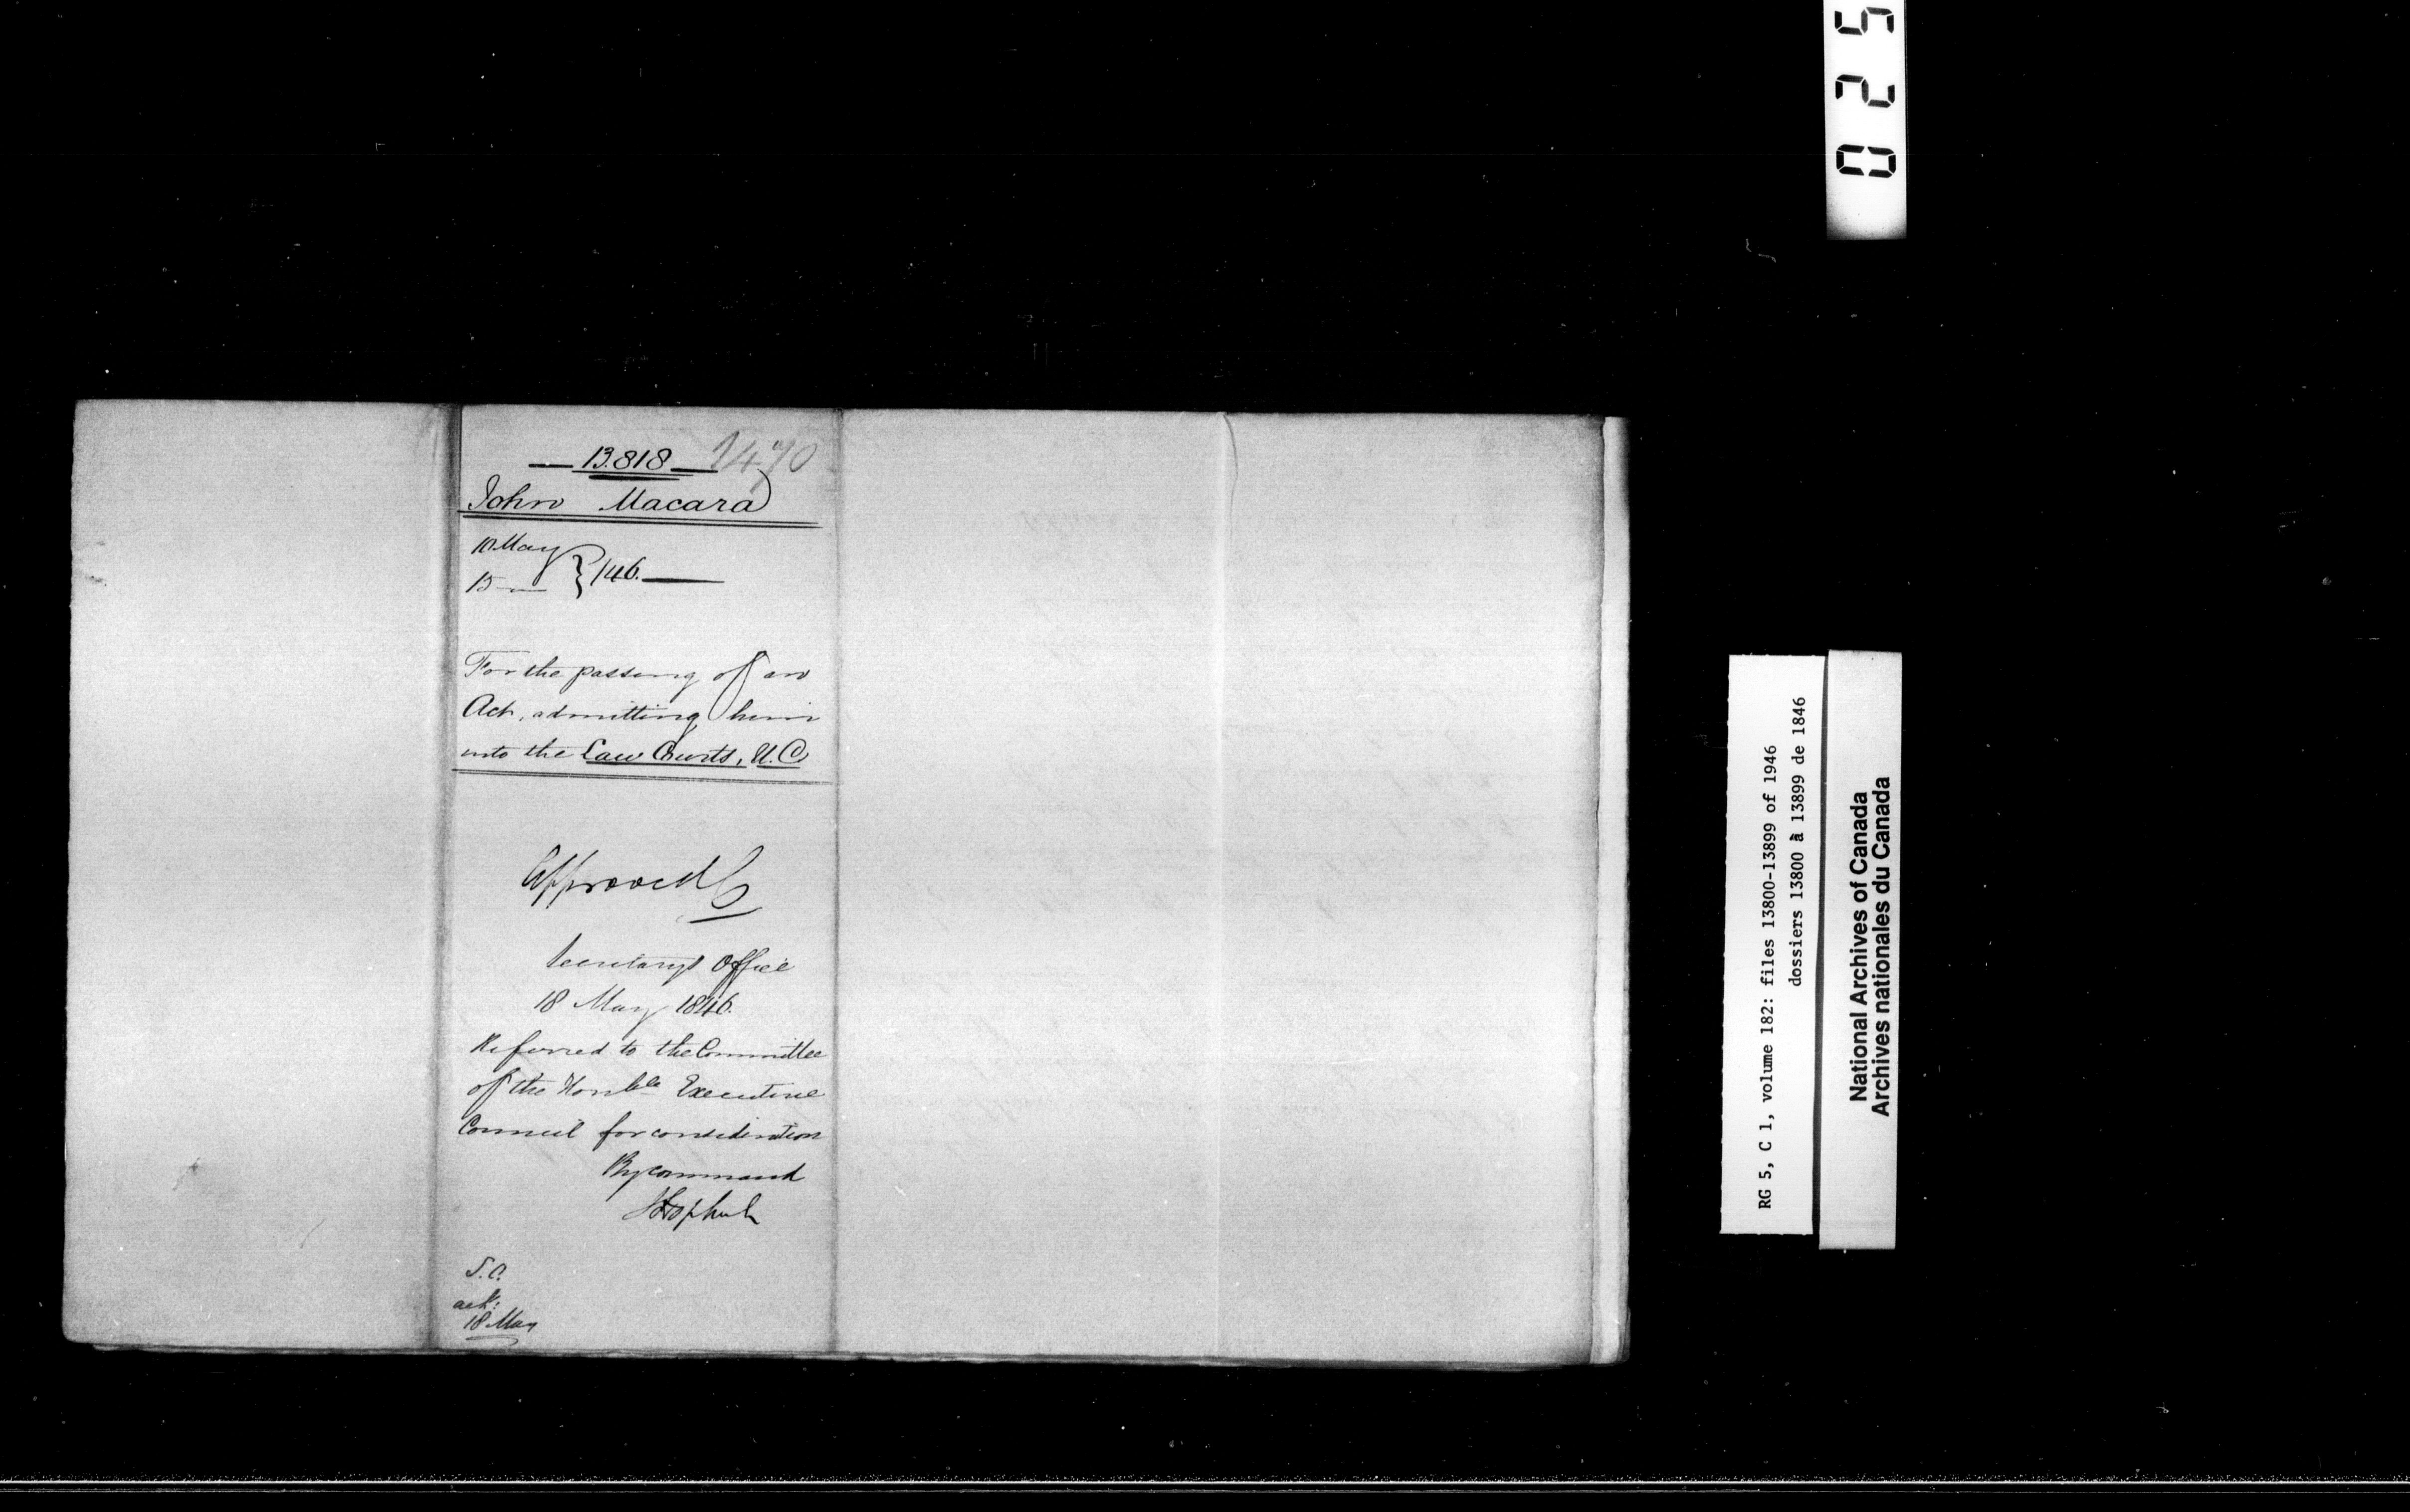 025
13.818
John Macara
10 May
15 — } /46.
For the passing of an
Act, admitting him
into the Law Courts, U.C.
Approved
Secretary's Office
18 May 1846.
Referred to the Committee
of the Honble Executive
Council for consideration
By command
ack:
18 May
RG 5, C 1, volume 182: files 13800-13899 of 1946
dossiers 13800 à 13899 de 1846
National Archives of Canada
Archives nationales du Canada